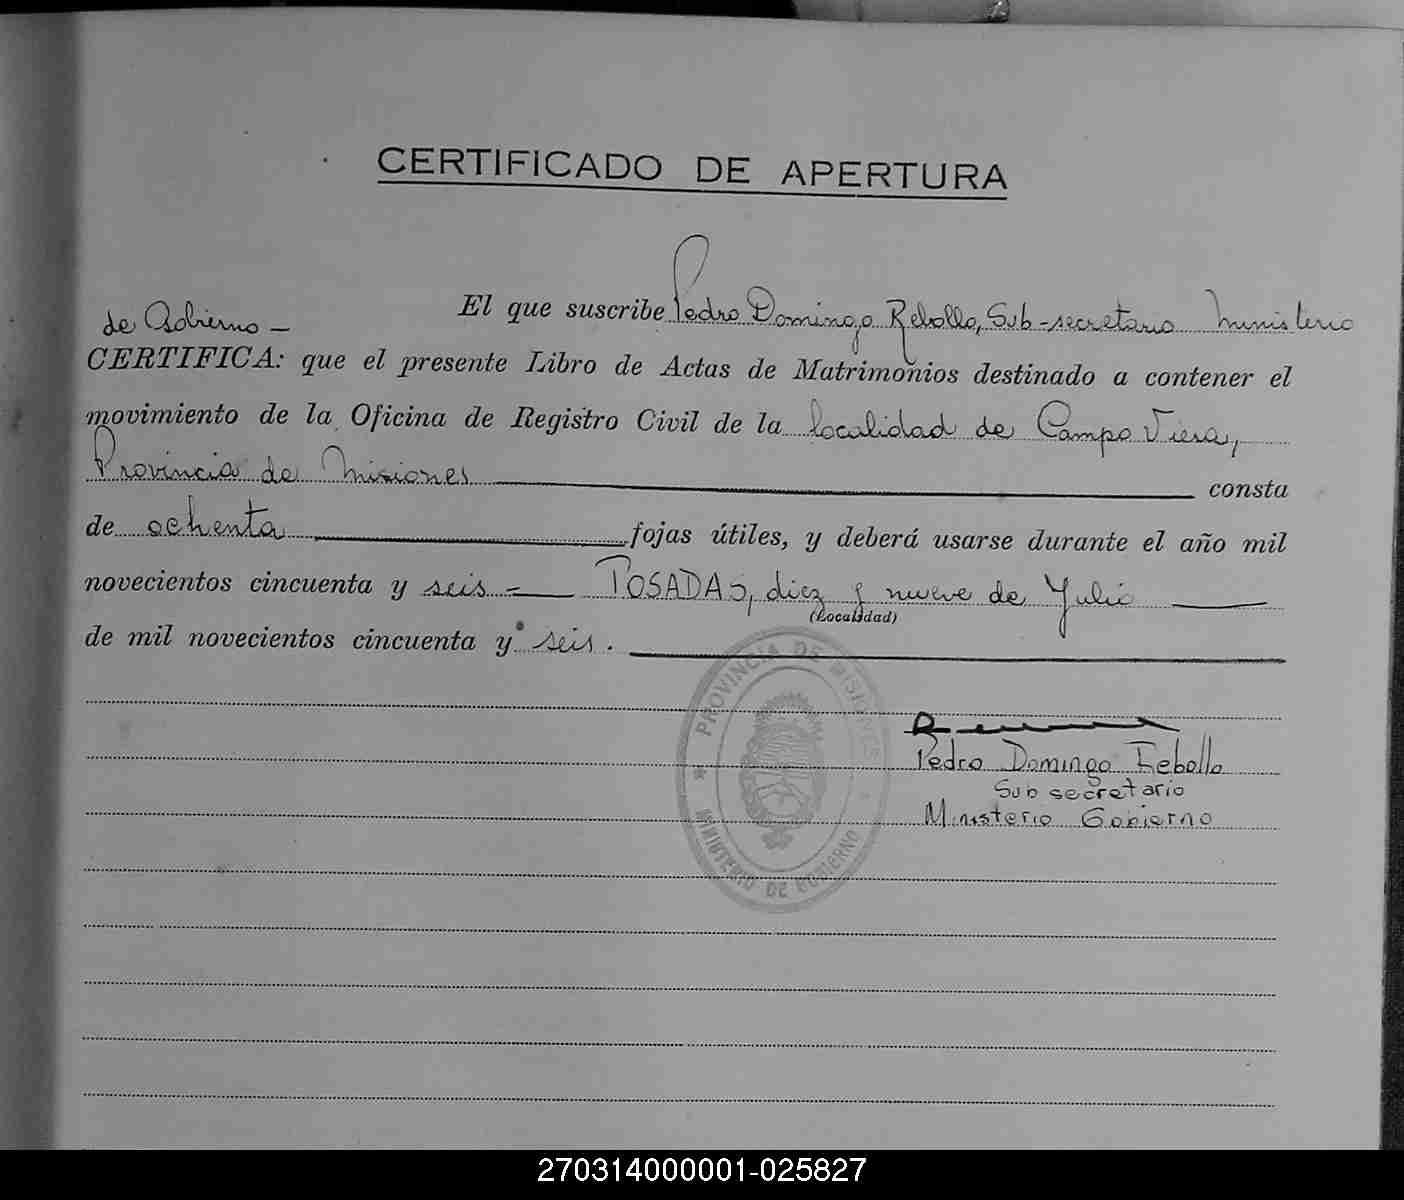 CERTIFICADO DE APERTURA
El que suscribe Pedro Domingo Rebollo, Sub-secretario Ministerio
de Gobierno -
CERTIFICA: que el presente Libro de Actas de Matrimonios destinado a contener el
movimiento de la Oficina de Registro Civil de la localidad de Campo Viera,
Provincia de Misiones consta
de ochenta fojas útiles, y deberá usarse durante el año mil
novecientos cincuenta y seis - POSADAS, diez y nueve de Julio
(Localidad)
de mil novecientos cincuenta y seis.
PROVINCIA DE MISIONES
MINISTERIO DE GOBIERNO
Pedro Domingo Rebollo
Sub secretario
Ministerio Gobierno
270314000001-025827